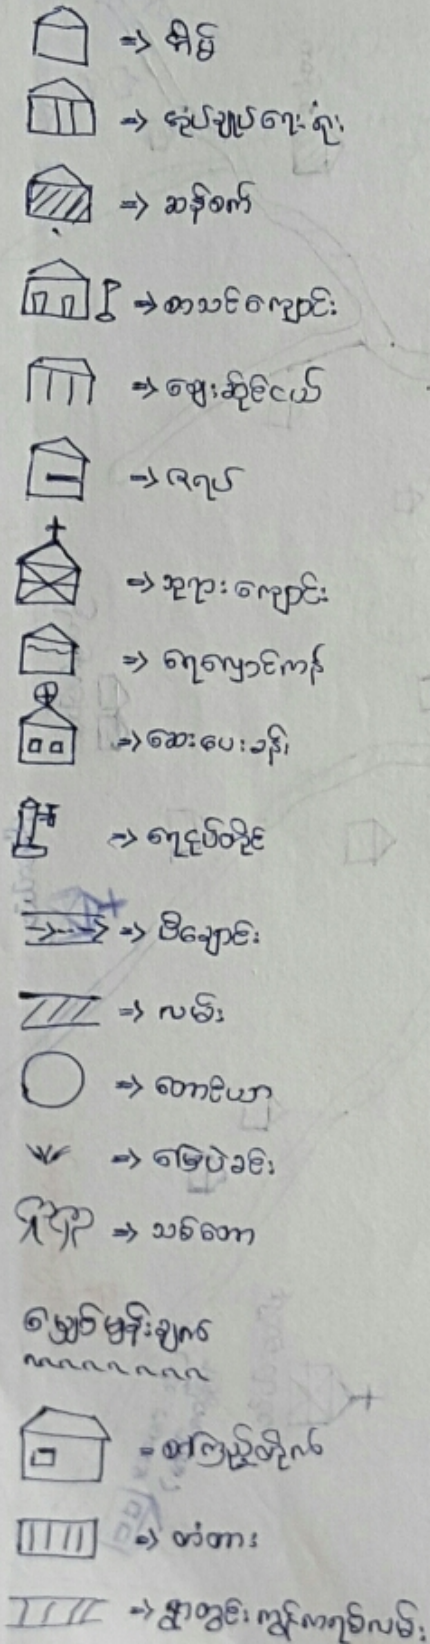 အိမ်
အုပ်ချုပ်ရေးရုံး
ဆန်စက်
စာသင်ကျောင်း
ဈေးဆိုင်ငယ်
ဇရပ်
ဘုရားကျောင်း
ရေလှောင်ကန်
ဆေးပေးခန်း
ရေငုပ်တိုင်
စီးချောင်း
လမ်း
တောင်ယာ
မြေပဲခင်း
သစ်တော
မျှော်မှန်းချက်
စာကြည့်တိုက်
တံတား
ရွာတွင်းကွန်ကရစ်လမ်း